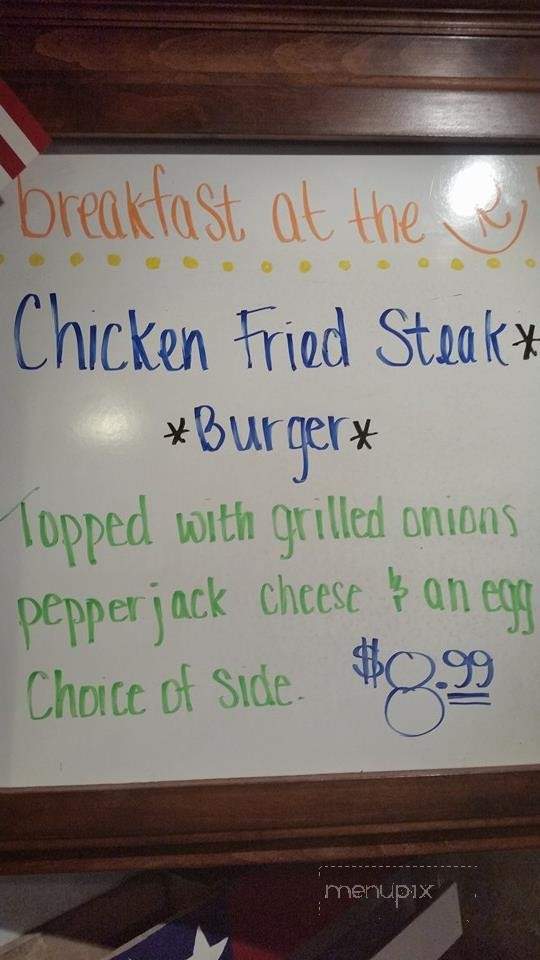 breakfast at the R
Chicken Fried Steak*
*Burger*
Topped with grilled onions
pepperjack cheese & an egg
Choice of Side.
$8.99
menupix